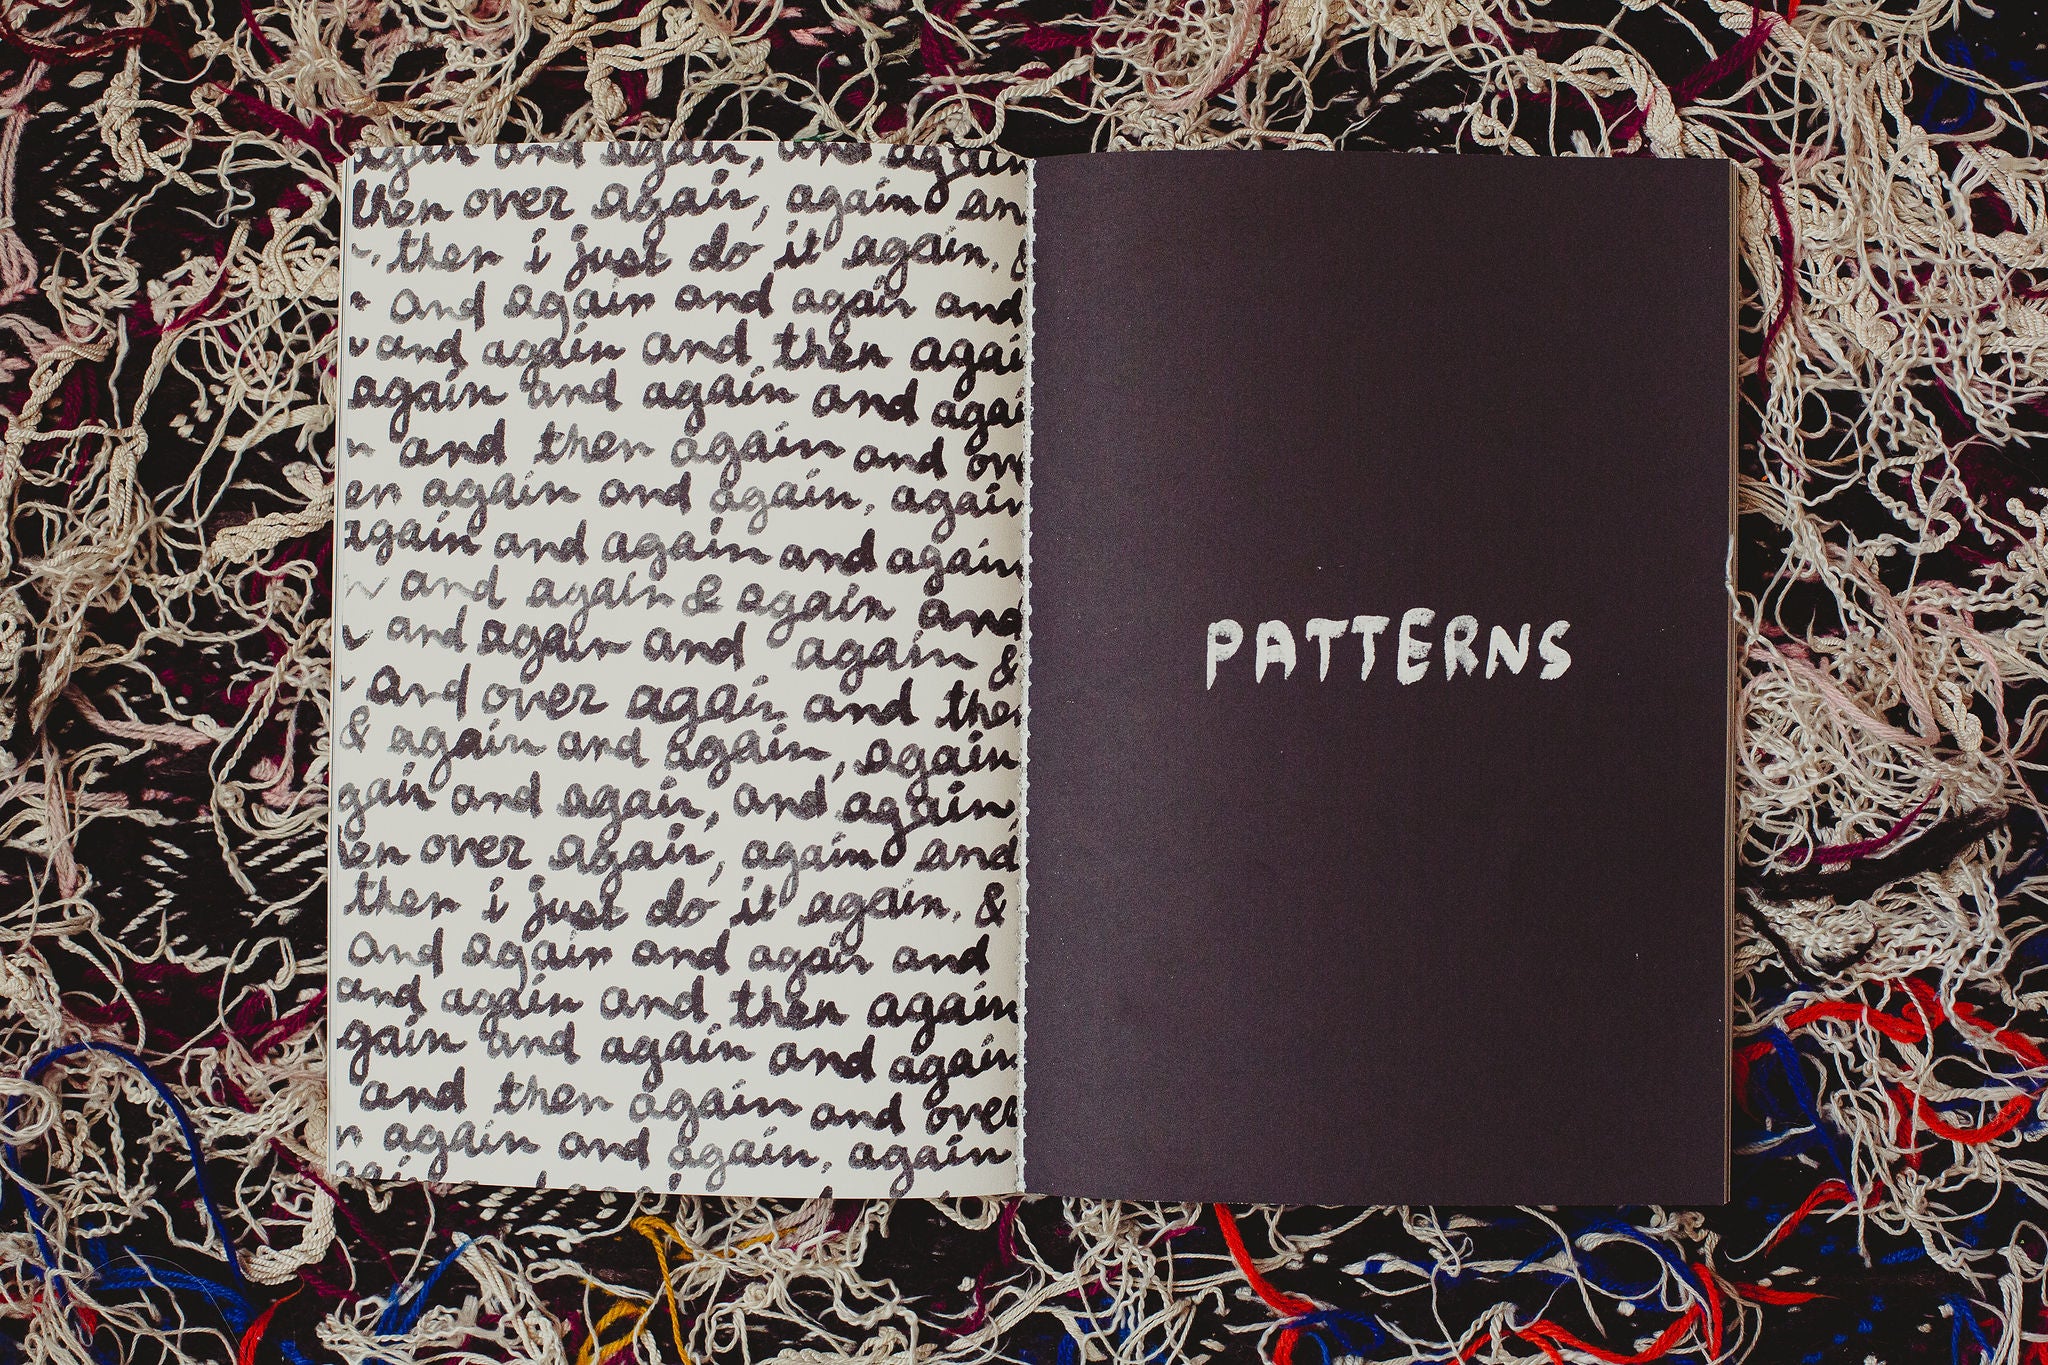 again and again, and again
then over again, again an
then i just do it again, &
and again and again and
and again and then agai
again and again and agai
and then again and ove
en again and again, again
again and again and again
and again & again and
and again and again &
and over again and then
& again and again, again
gain and again, and again,
en over again, again and
then i just do it again, &
and again and again and
and again and then again
gain and again and again
and then again and over
n again and again, again
PATTERNS